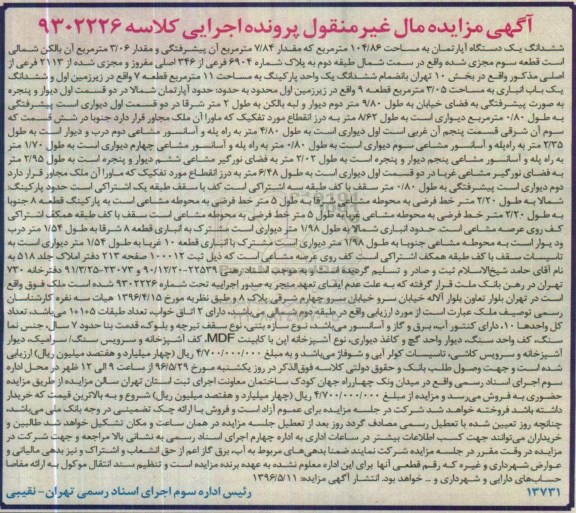 آگهی مزایده مال غیر منقول پرونده اجرایی کلاسه ۹۳۰۲۲۲۶
ششدانگ یک دستگاه آپارتمان به مساحت ۱۰۴/۸۶ مترمربع که مقدار ۷/۸۴ مترمربع آن پیشرفتگی و مقدار ۳/۰۶ مترمربع آن بالکن شمالی
است قطعه سوم مجزی شده واقع در سمت شمال طبقه دوم به پلاک شماره ۶۹۰۴ فرعی از ۳۴۶ اصلی مفروز و مجزی شده از ۲۱۱۳ فرعی از
اصلی مذکور واقع در بخش ۱۰ تهران بانضمام ششدانگ یک واحد پارکینگ به مساحت ۱۱ مترمربع قطعه ۷ واقع در زیرزمین اول و ششدانگ
یک باب انباری به مساحت ۳/۰۵ مترمربع قطعه ۹ واقع در زیرزمین اول محدود به حدود: حدود آپارتمان شمالا در دو قسمت اول دیوار و پنجره
به صورت پیشرفتگی به فضای خیابان به طول ۹/۸۰ متر دوم دیوار و لبه بالکن به طول ۲ متر شرقا در دو قسمت اول دیواری است پیشرفتگی
به طول ۰/۸۰ مترمربع دیواری است به طول ۸/۶۲ متر به درز انقطاع مورد تفکیک که ماورا آن ملک مجاور قرار دارد جنوبا در شش قسمت که
سوم آن شرقی قسمت پنجم آن غربی است اول دیواری است به طول ۴/۸۰ متر به راه پله و آسانسور مشاعی دوم درب و دیوار است به طول
۲/۳۵ متر به راه پله و آسانسور مشاعی سوم دیواری است به طول ۰/۸۰ متر به راه پله و آسانسور مشاعی چهارم دیواری است به طول ۱/۷۰ متر
به راه پله و آسانسور مشاعی پنجم دیوار و پنجره است به طول ۲/۰۲ متر به فضای نورگیر مشاعی ششم دیوار و پنجره است به طول ۲/۹۵ متر
به فضای نورگیر مشاعی غربا در دو قسمت اول دیواری است به طول ۶/۴۸ متر به درز انقطاع مورد تفکیک که ماورا آن ملک مجاور قرار دارد
دوم دیواری است پیشرفتگی به طول ۰/۸۰ متر سقف با کف طبقه سه اشتراکی است کف با سقف طبقه یک اشتراکی است حدود پارکینگ:
شمالا به طول ۲/۲۰ متر خط فرضی به محوطه مشاعی شرقا به طول ۵ متر خط فرضی به محوطه مشاعی است به پارکینگ قطعه ۸ جنوبا
به طول ۲/۲۰ متر خط فرضی به محوطه مشاعی غربا به طول ۵ متر خط فرضی به محوطه مشاعی است سقف با کف طبقه همکف اشتراکی
کف روی عرصه مشاعی است. حدود انباری شمالا به طول ۱/۹۸ متر دیواری است مشترک به انباری قطعه ۸ شرقا به طول ۱/۵۴ متر درب
ودیوار است به محوطه مشاعی جنوبا به طول ۱/۹۸ متر دیواری است مشترک با انباری قطعه ۱۰ غربا به طول ۱/۵۴ متر دیواری است به
تاسیسات سقف با کف طبقه همکف اشتراکی است کف روی عرصه مشاعی است که ذیل ثبت ۱۰۰۰۱۲ صفحه ۲۱۳ دفتر املاک جلد ۵۱۸ به
نام آقای حامد شیخ‌الاسلام ثبت و صادر و تسلیم گردیده است و به موجب اسناد رهنی ۲۲۵۳۹-۹۰/۱۲/۲۰ و ۲۳۰۷۳-۹۱/۳/۲۵ دفترخانه ۷۳۰
تهران در رهن بانک ملت قرار گرفته که به علت عدم ایفای تعهد منجر به صدور اجراییه تحت شماره ۹۳۰۲۲۲۶ شده است ملک فوق واقع
است در تهران بلوار تعاون بلوار آلاله خیابان سرو خیابان سرو چهارم شرقی پلاک ۸ و طبق نظریه مورخ ۱۳۹۶/۴/۱۵ هیات سه نفره کارشناسان
رسمی توصیف ملک عبارت است از مورد ارزیابی واقع در طبقه دوم شمالی می‌باشد، دارای ۲ اتاق خواب، تعداد طبقات ۵+۱+۱ می‌باشد، تعداد
کل واحدها ۱۰، دارای کنتور آب، برق و گاز و آسانسور می‌باشد، نوع سازه بتنی، نوع سقف تیرچه و بلوک، قدمت بنا حدود ۷ سال، جنس نما
سنگ، کف واحد سنگ، دیوار واحد گچ و کاغذ دیواری، نوع آشپزخانه اپن با کابینت MDF، کف آشپزخانه و سرویس سنگ/ سرامیک، دیوار
آشپزخانه و سرویس کاشی، تاسیسات کولر آبی و شوفاژ می‌باشد و به مبلغ ۴/۷۰۰/۰۰۰/۰۰۰ ریال (چهار میلیارد و هفتصد میلیون ریال) ارزیابی
شده است و جهت وصول طلب بانک و حقوق دولتی کلاسه فوق‌الذکر در روز یکشنبه مورخ ۹۶/۵/۲۹ از ساعت ۹ الی ۱۲ ظهر در محل اداره
سوم اجرای اسناد رسمی واقع در میدان ونک چهارراه جهان کودک ساختمان معاونت اجرای ثبت استان تهران سالن مزایده از طریق مزایده
حضوری به فروش می‌رسد و مزایده از مبلغ ۴/۷۰۰/۰۰۰/۰۰۰ ریال (چهار میلیارد و هفتصد میلیون ریال) شروع و به بالاترین قیمت که خریدار
داشته باشد فروخته خواهد شد شرکت در جلسه مزایده برای عموم آزاد است و فروش با ارائه چک تضمینی در وجه بانک ملی می‌باشد.
چنانچه روز تعیین شده با تعطیل رسمی مصادف گردد روز بعد از تعطیل جلسه مزایده در همان ساعت و مکان تشکیل خواهد شد طالبین و
خریداران می‌توانند جهت کسب اطلاعات بیشتر در ساعات اداری به اداره چهارم اجرای اسناد رسمی به نشانی بالا مراجعه و جهت شرکت در
مزایده در وقت مقرر در جلسه مزایده شرکت نمایند ضمنا بدهی‌های مربوط به آب، برق گاز اعم از حق انشعاب و اشتراک و نیز بدهی مالیاتی و
عوارض شهرداری و غیره که رقم قطعی آنها برای این اداره معلوم نشده به عهده برنده مزایده است و تنظیم سند انتقال موکول به ارائه مفاصا
حساب‌های دارایی و شهرداری و ... خواهد بود. انتشار آگهی مزایده: ۱۳۹۶/۵/۱۱
۱۳۷۳۱
رئیس اداره سوم اجرای اسناد رسمی تهران- نقیبی